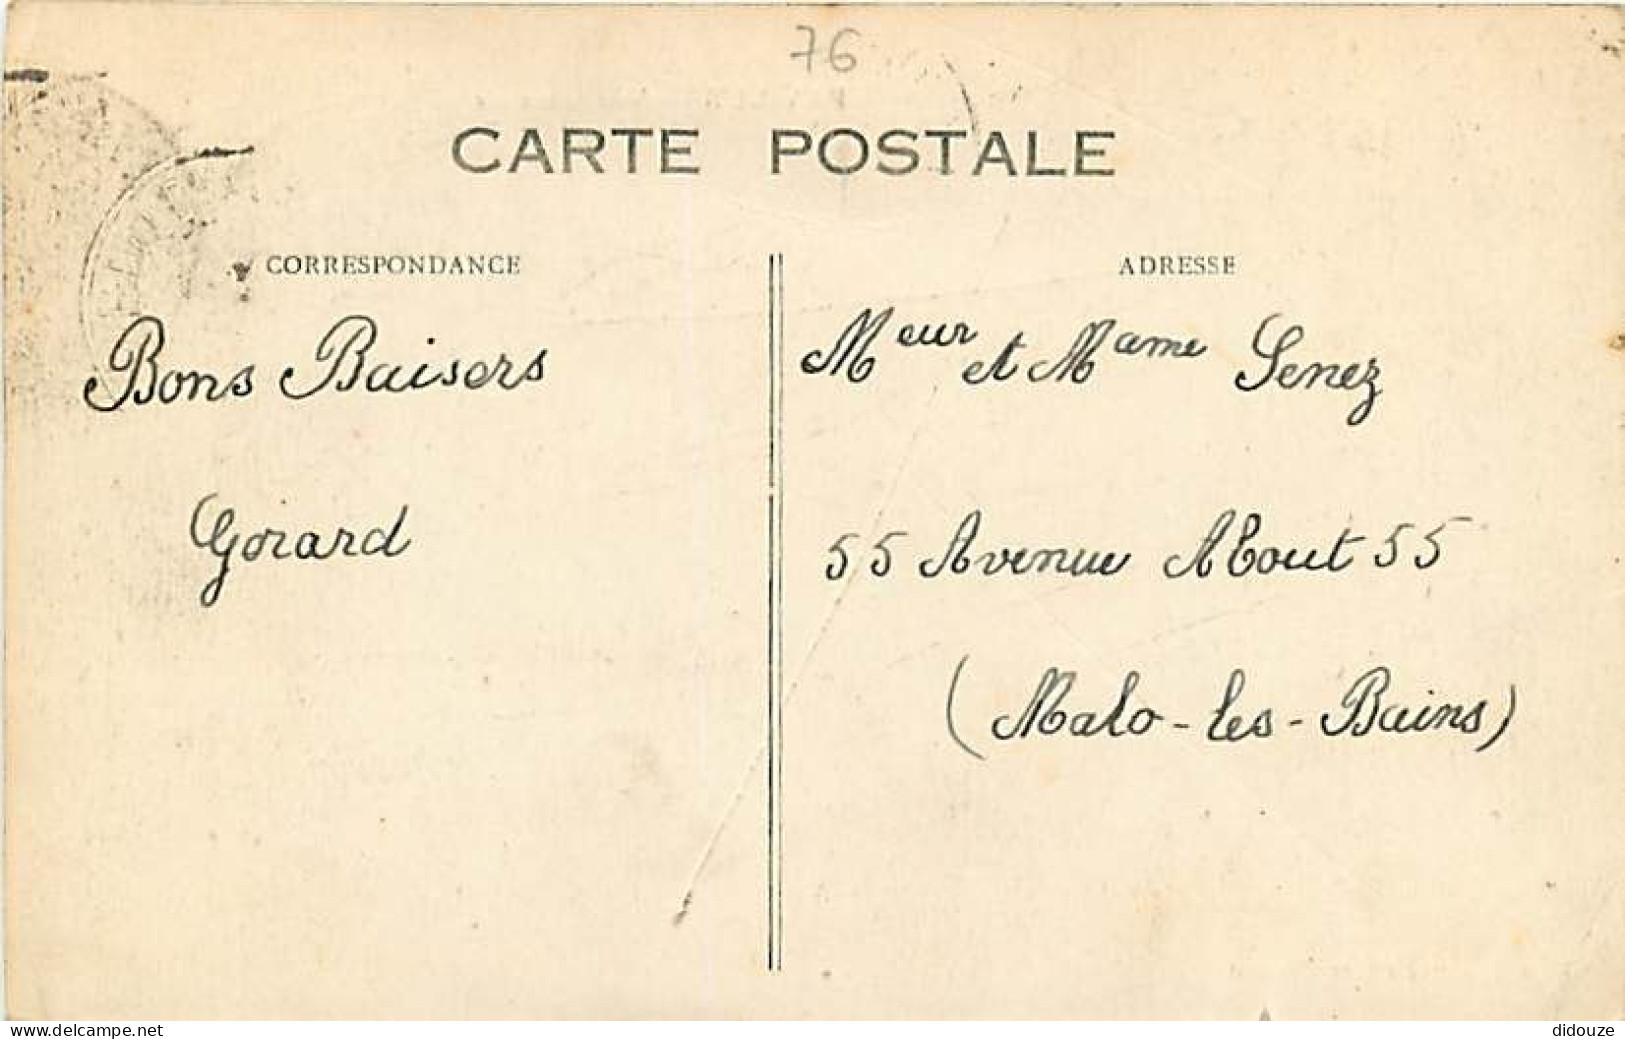 76
CARTE POSTALE
CORRESPONDANCE
Bons Baisers
Gérard
ADRESSE
Meur et Mame Senez
55 Avenue About 55
(Malo-les-Bains)
www.delcampe.net
didouze